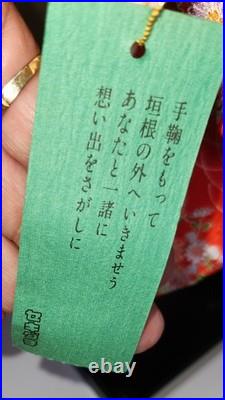 手鞠をもって
垣根の外へいきませう
あなたと一諸に
想い出をさがしに